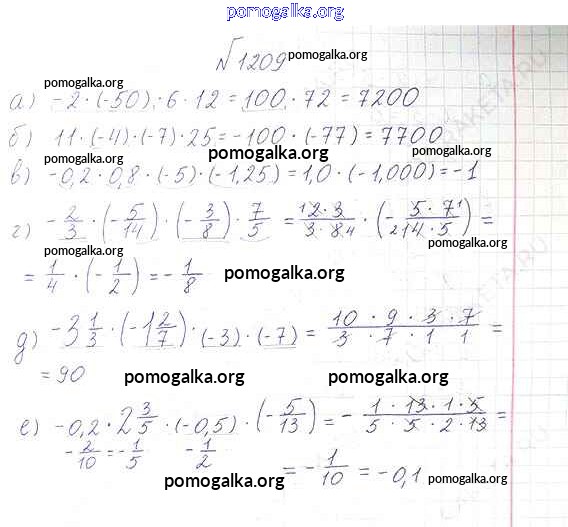 pomogalka.org
№1209 pomogalka.org
pomogalka.org
а) -2·(-50)·6·12=100·72=7200
б) 11·(-4)·(-7)·25=-100·(-77)=7700
pomogalka.org pomogalka.org
в) -0,2·0,8·(-5)·(-1,25)=1,0·(-1,000)=-1
г) -2/3·(-5/14)·(-3/8)·7/5=12·3/3·84·(-5·71/214·5)=
pomogalka.org
=1/4·(-1/2)=-1/8 pomogalka.org
д) -3 1/3·(-1 2/7)·(-3)·(-7)=10·9·3·7/3·7·1·1=
=90 pomogalka.org pomogalka.org
е) -0,2·2 3/5·(-0,5)·(-5/13)=-1·13·1·5/5·5·2·13=
-2/10=-1/5 -1/2
=-1/10=-0,1 pomogalka.org
pomogalka.org